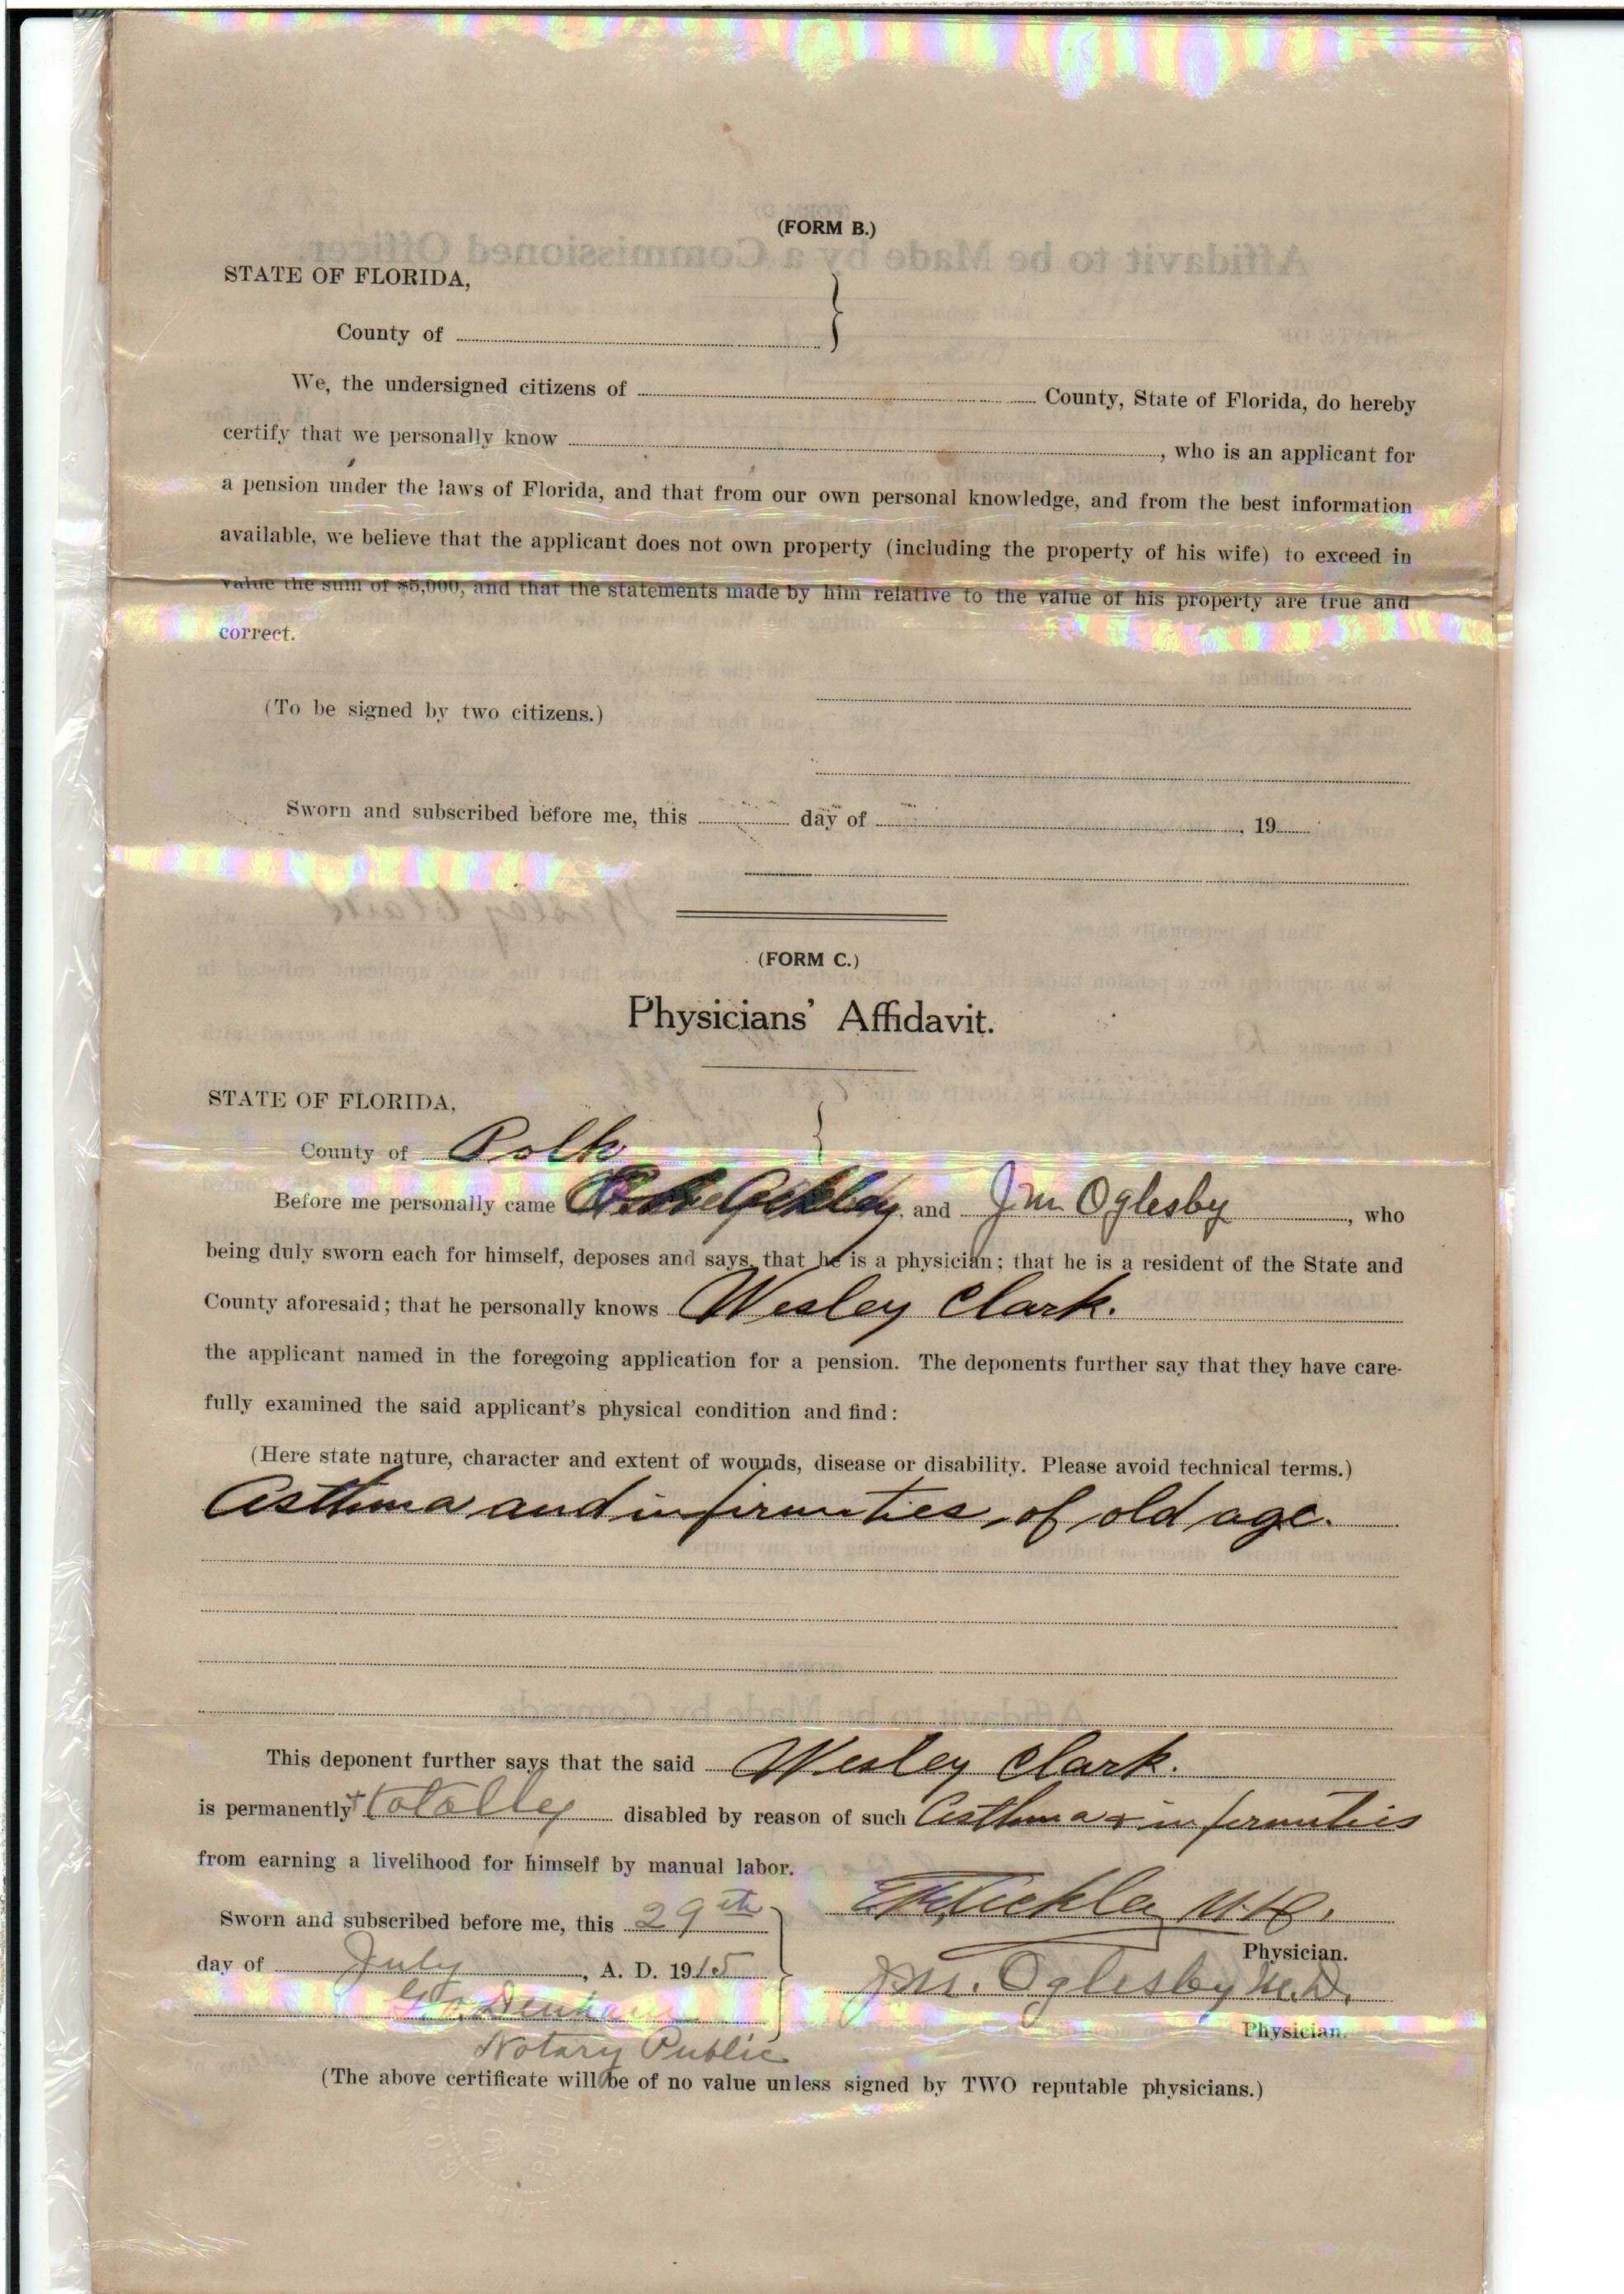 (FORM B.)
STATE OF FLORIDA,
County of
We, the undersigned citizens of County, State of Florida, do hereby
certify that we personally know , who is an applicant for
a pension under the laws of Florida, and that from our own personal knowledge, and from the best information
available, we believe that the applicant does not own property (including the property of his wife) to exceed in
value the sum of $5,000, and that the statements made by him relative to the value of his property are true and
correct.
(To be signed by two citizens.)
Sworn and subscribed before me, this day of , 19
(FORM C.)
Physicians' Affidavit.
STATE OF FLORIDA,
County of Polk
Before me personally came and J m Oglesby , who
being duly sworn each for himself, deposes and says, that he is a physician; that he is a resident of the State and
County aforesaid; that he personally knows Wesley Clark.
the applicant named in the foregoing application for a pension. The deponents further say that they have care-
fully examined the said applicant's physical condition and find:
(Here state nature, character and extent of wounds, disease or disability. Please avoid technical terms.)
Asthma and infirmities, of old age.
This deponent further says that the said Wesley Clark.
is permanently + totally disabled by reason of such Asthma + infirmities
from earning a livelihood for himself by manual labor.
M.D.
Sworn and subscribed before me, this 29th
Physician.
day of July , A. D. 1915
J m. Oglesby M.D.
Denham
Physician.
Notary Public
(The above certificate will be of no value unless signed by TWO reputable physicians.)